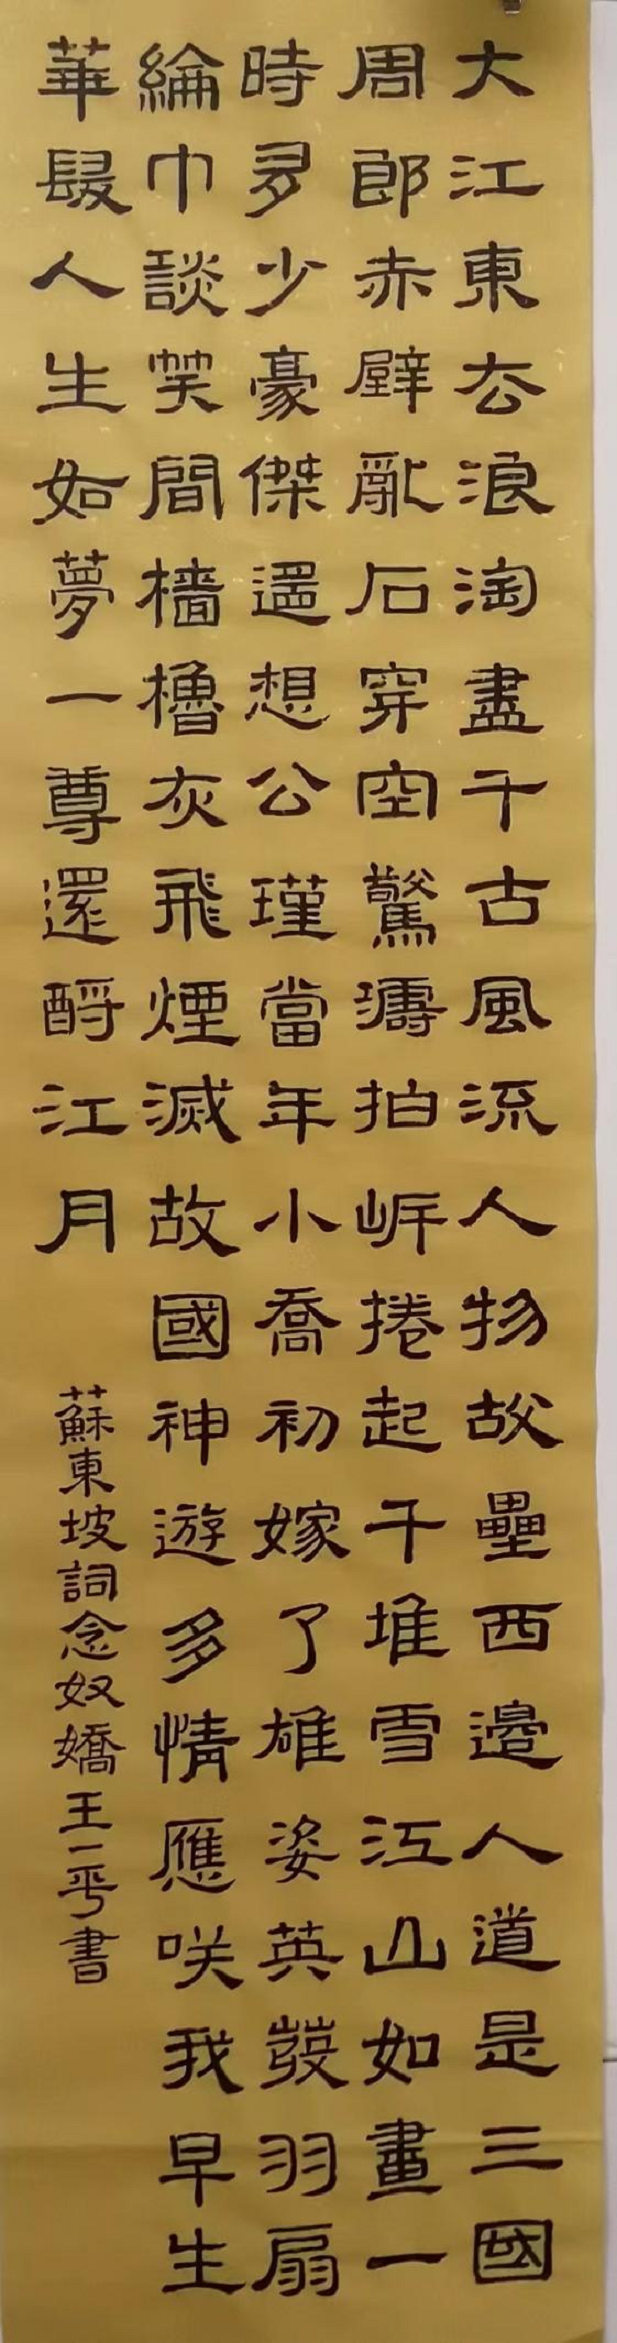 大江東去浪淘盡千古風流人物故壘西邊人道是三國
周郎赤壁亂石穿空驚濤拍岸捲起千堆雪江山如畫一
時多少豪傑遥想公瑾當年小喬初嫁了雄姿英發羽扇
綸巾談笑間檣櫓灰飛煙滅故國神遊多情應咲我早生
華髮人生如夢一尊還酹江月
蘇東坡詞念奴嬌王一平書